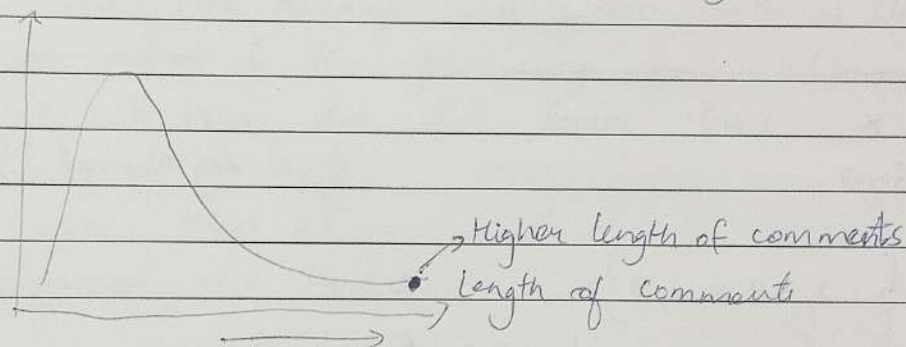 Higher length of comments
Length of comments